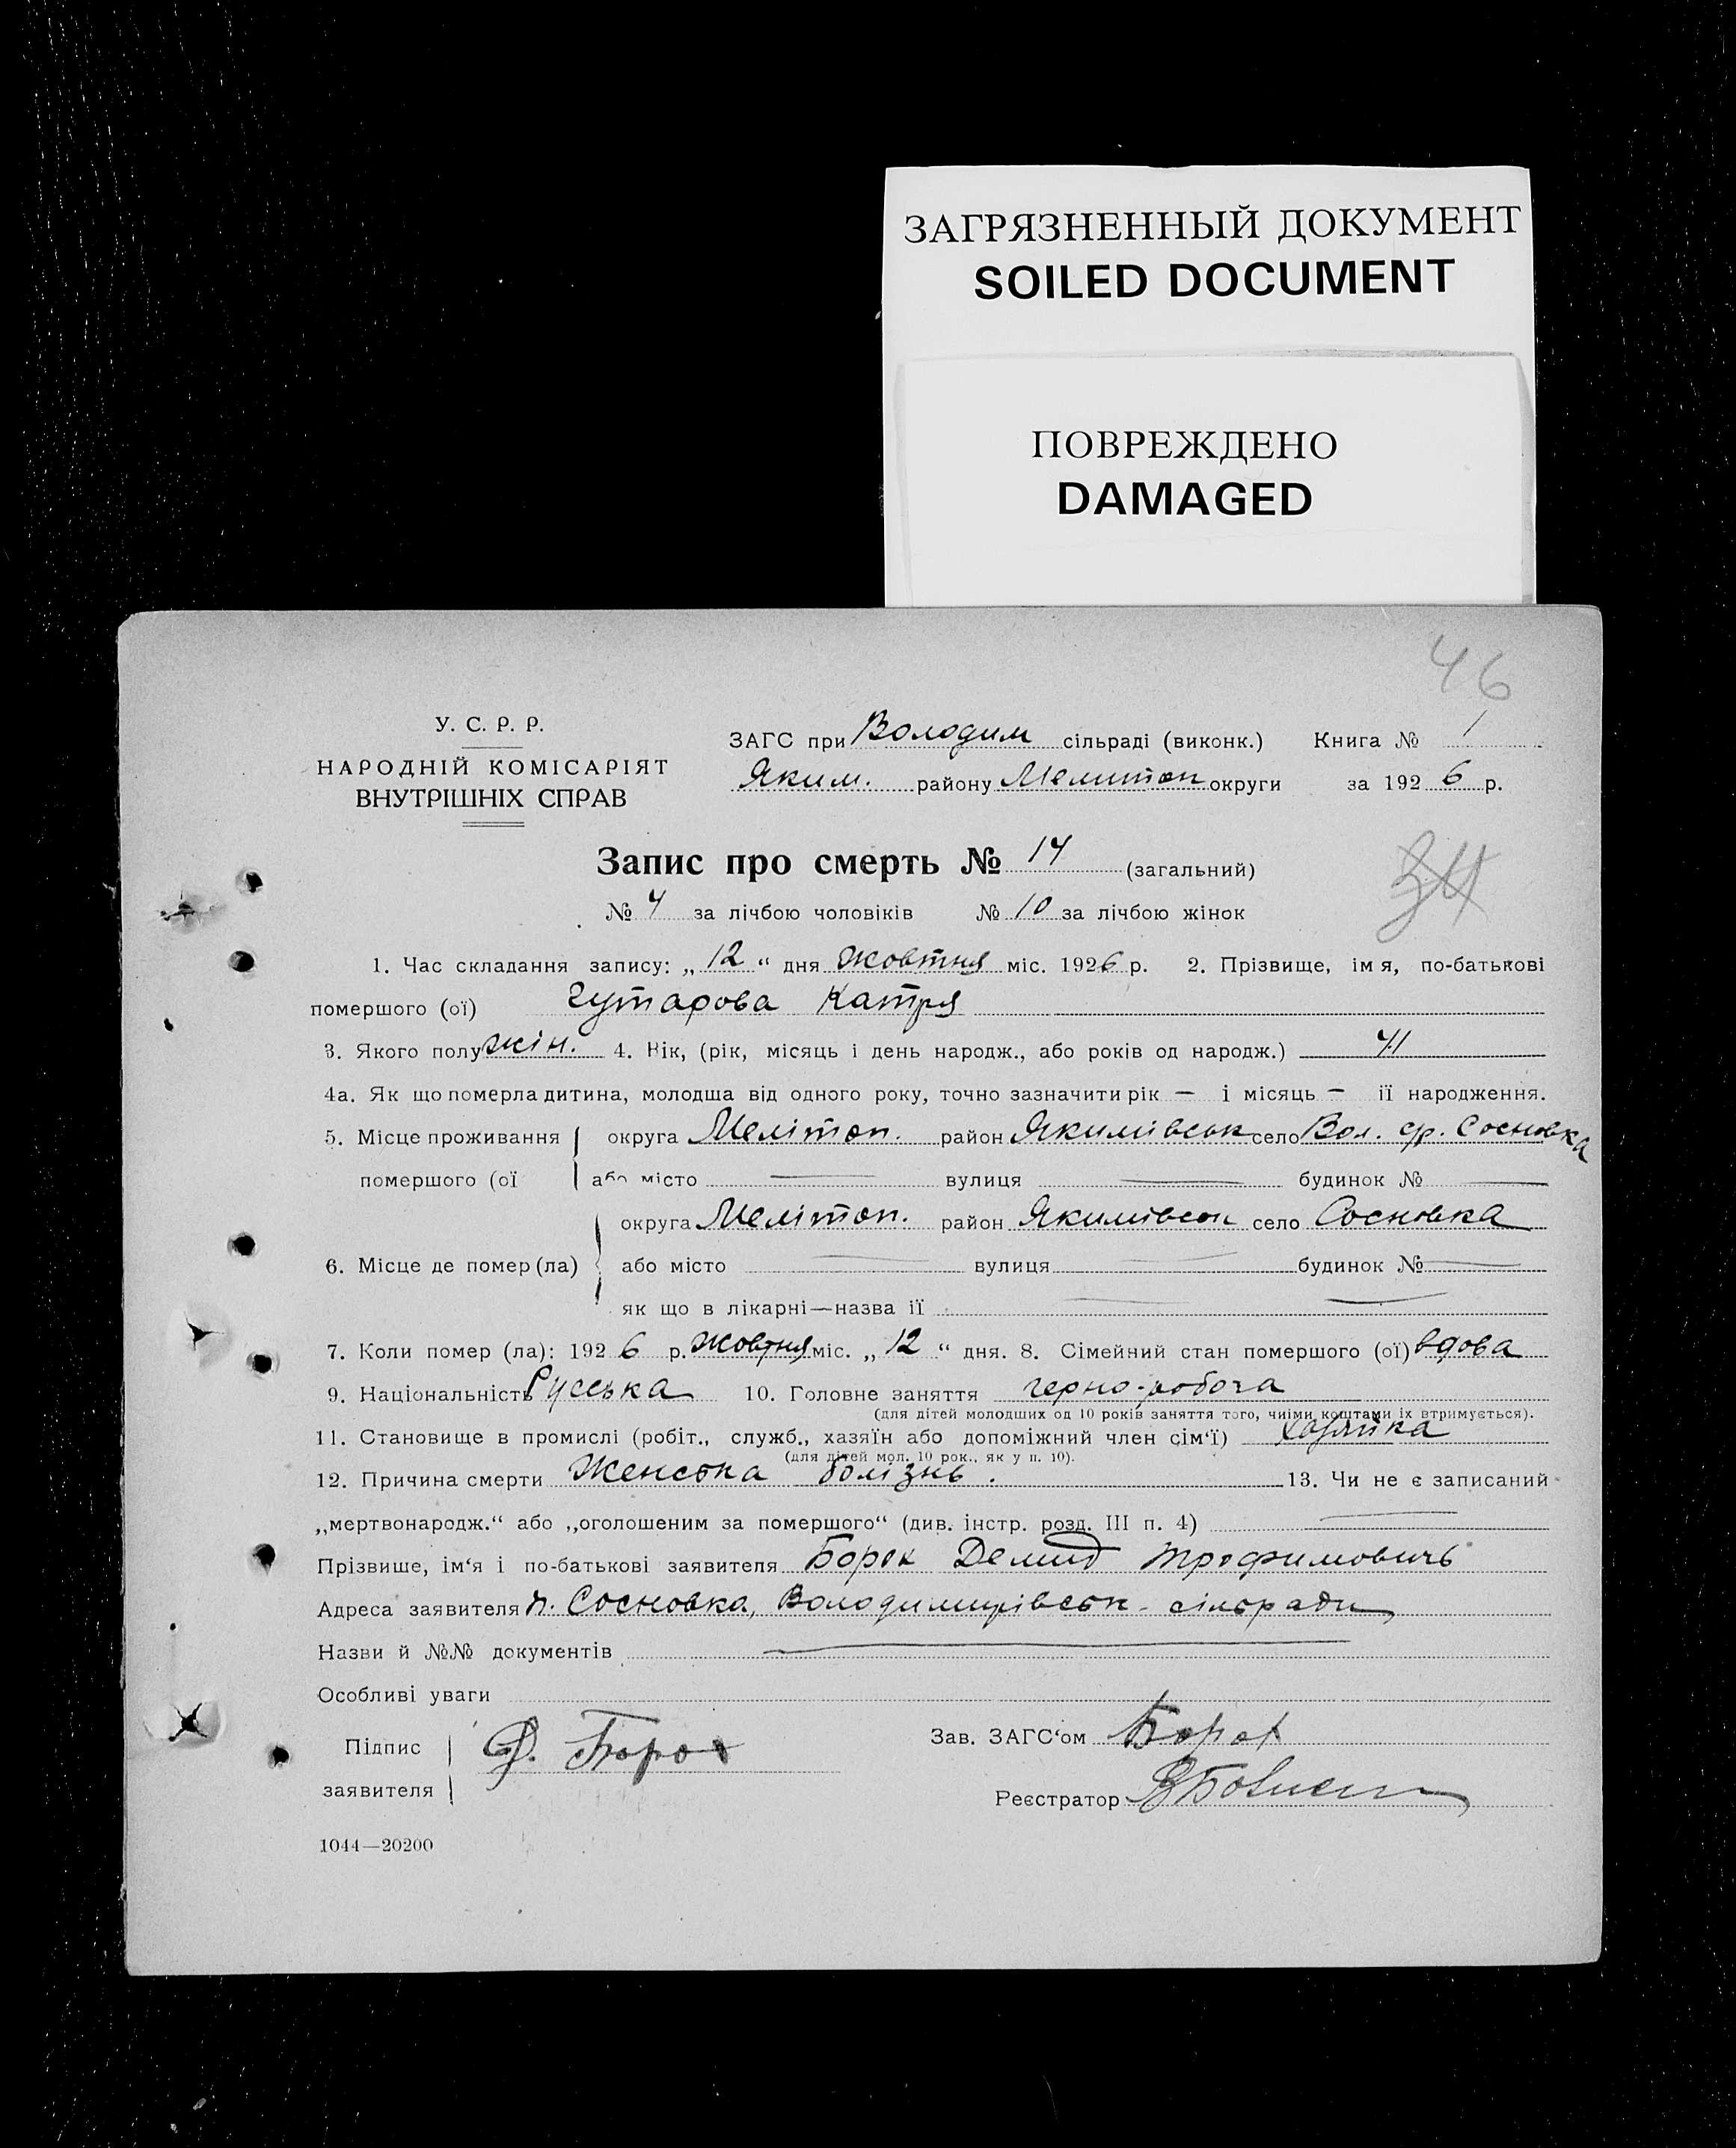 ЗАГРЯЗНЕННЫЙ ДОКУМЕНТ
SOILED DOCUMENT
ПОВРЕЖДЕНО
DAMAGED
46
У. С. Р. Р.
НАРОДНІЙ КОМІСАРІЯТ
ВНУТРІШНІХ СПРАВ
ЗАГС при Володим сільраді (виконк.) Книга № 1
Яким. району Мелитоп округи за 1926 р.
Запис про смерть № 14 (загальний)
№ 4 за лічбою чоловіків № 10 за лічбою жінок
1. Час складання запису: „12“ дня жовтня міс. 1926 р. 2. Прізвище, імя, по-батькові
помершого (ої) Гутарова Катря
3. Якого полу жін. 4. Вік, (рік, місяць і день народж., або років од народж.) 41
4а. Як що померла дитина, молодша від одного року, точно зазначити рік — і місяць — її народження.
5. Місце проживання округа Мелітоп. район Якимівськ село Вол. ср. Сосновка
помершого (ої або місто — вулиця — будинок № —
округа Мелітоп. район Якимівськ село Сосновка
6. Місце де помер (ла) або місто — вулиця — будинок № —
як що в лікарні—назва її — —
7. Коли помер (ла): 1926 р. жовтня міс. „12“ дня. 8. Сімейний стан помершого (ої) вдова
9. Національність Руська 10. Головне заняття черно-робоча
(для дітей молодших од 10 років заняття того, чиїми коштами їх втримується).
11. Становище в промислі (робіт., служб., хазяїн або допоміжний член сім‘ї) хазяйка
(для дітей мол. 10 рок., як у п. 10).
12. Причина смерти Женська болізнь. 13. Чи не є записаний
„мертвонародж.“ або „оголошеним за помершого“ (див. інстр. розд. III п. 4) —
Прізвище, ім‘я і по-батькові заявителя Борох Демид Трофимовичь
Адреса заявителя п. Сосновка, Володимирівськ- сільради
Назви й №№ документів —
Особливі уваги
Підпис
заявителя
Д. Борох
Зав. ЗАГС‘ом Борох
Реєстратор
1044—20200